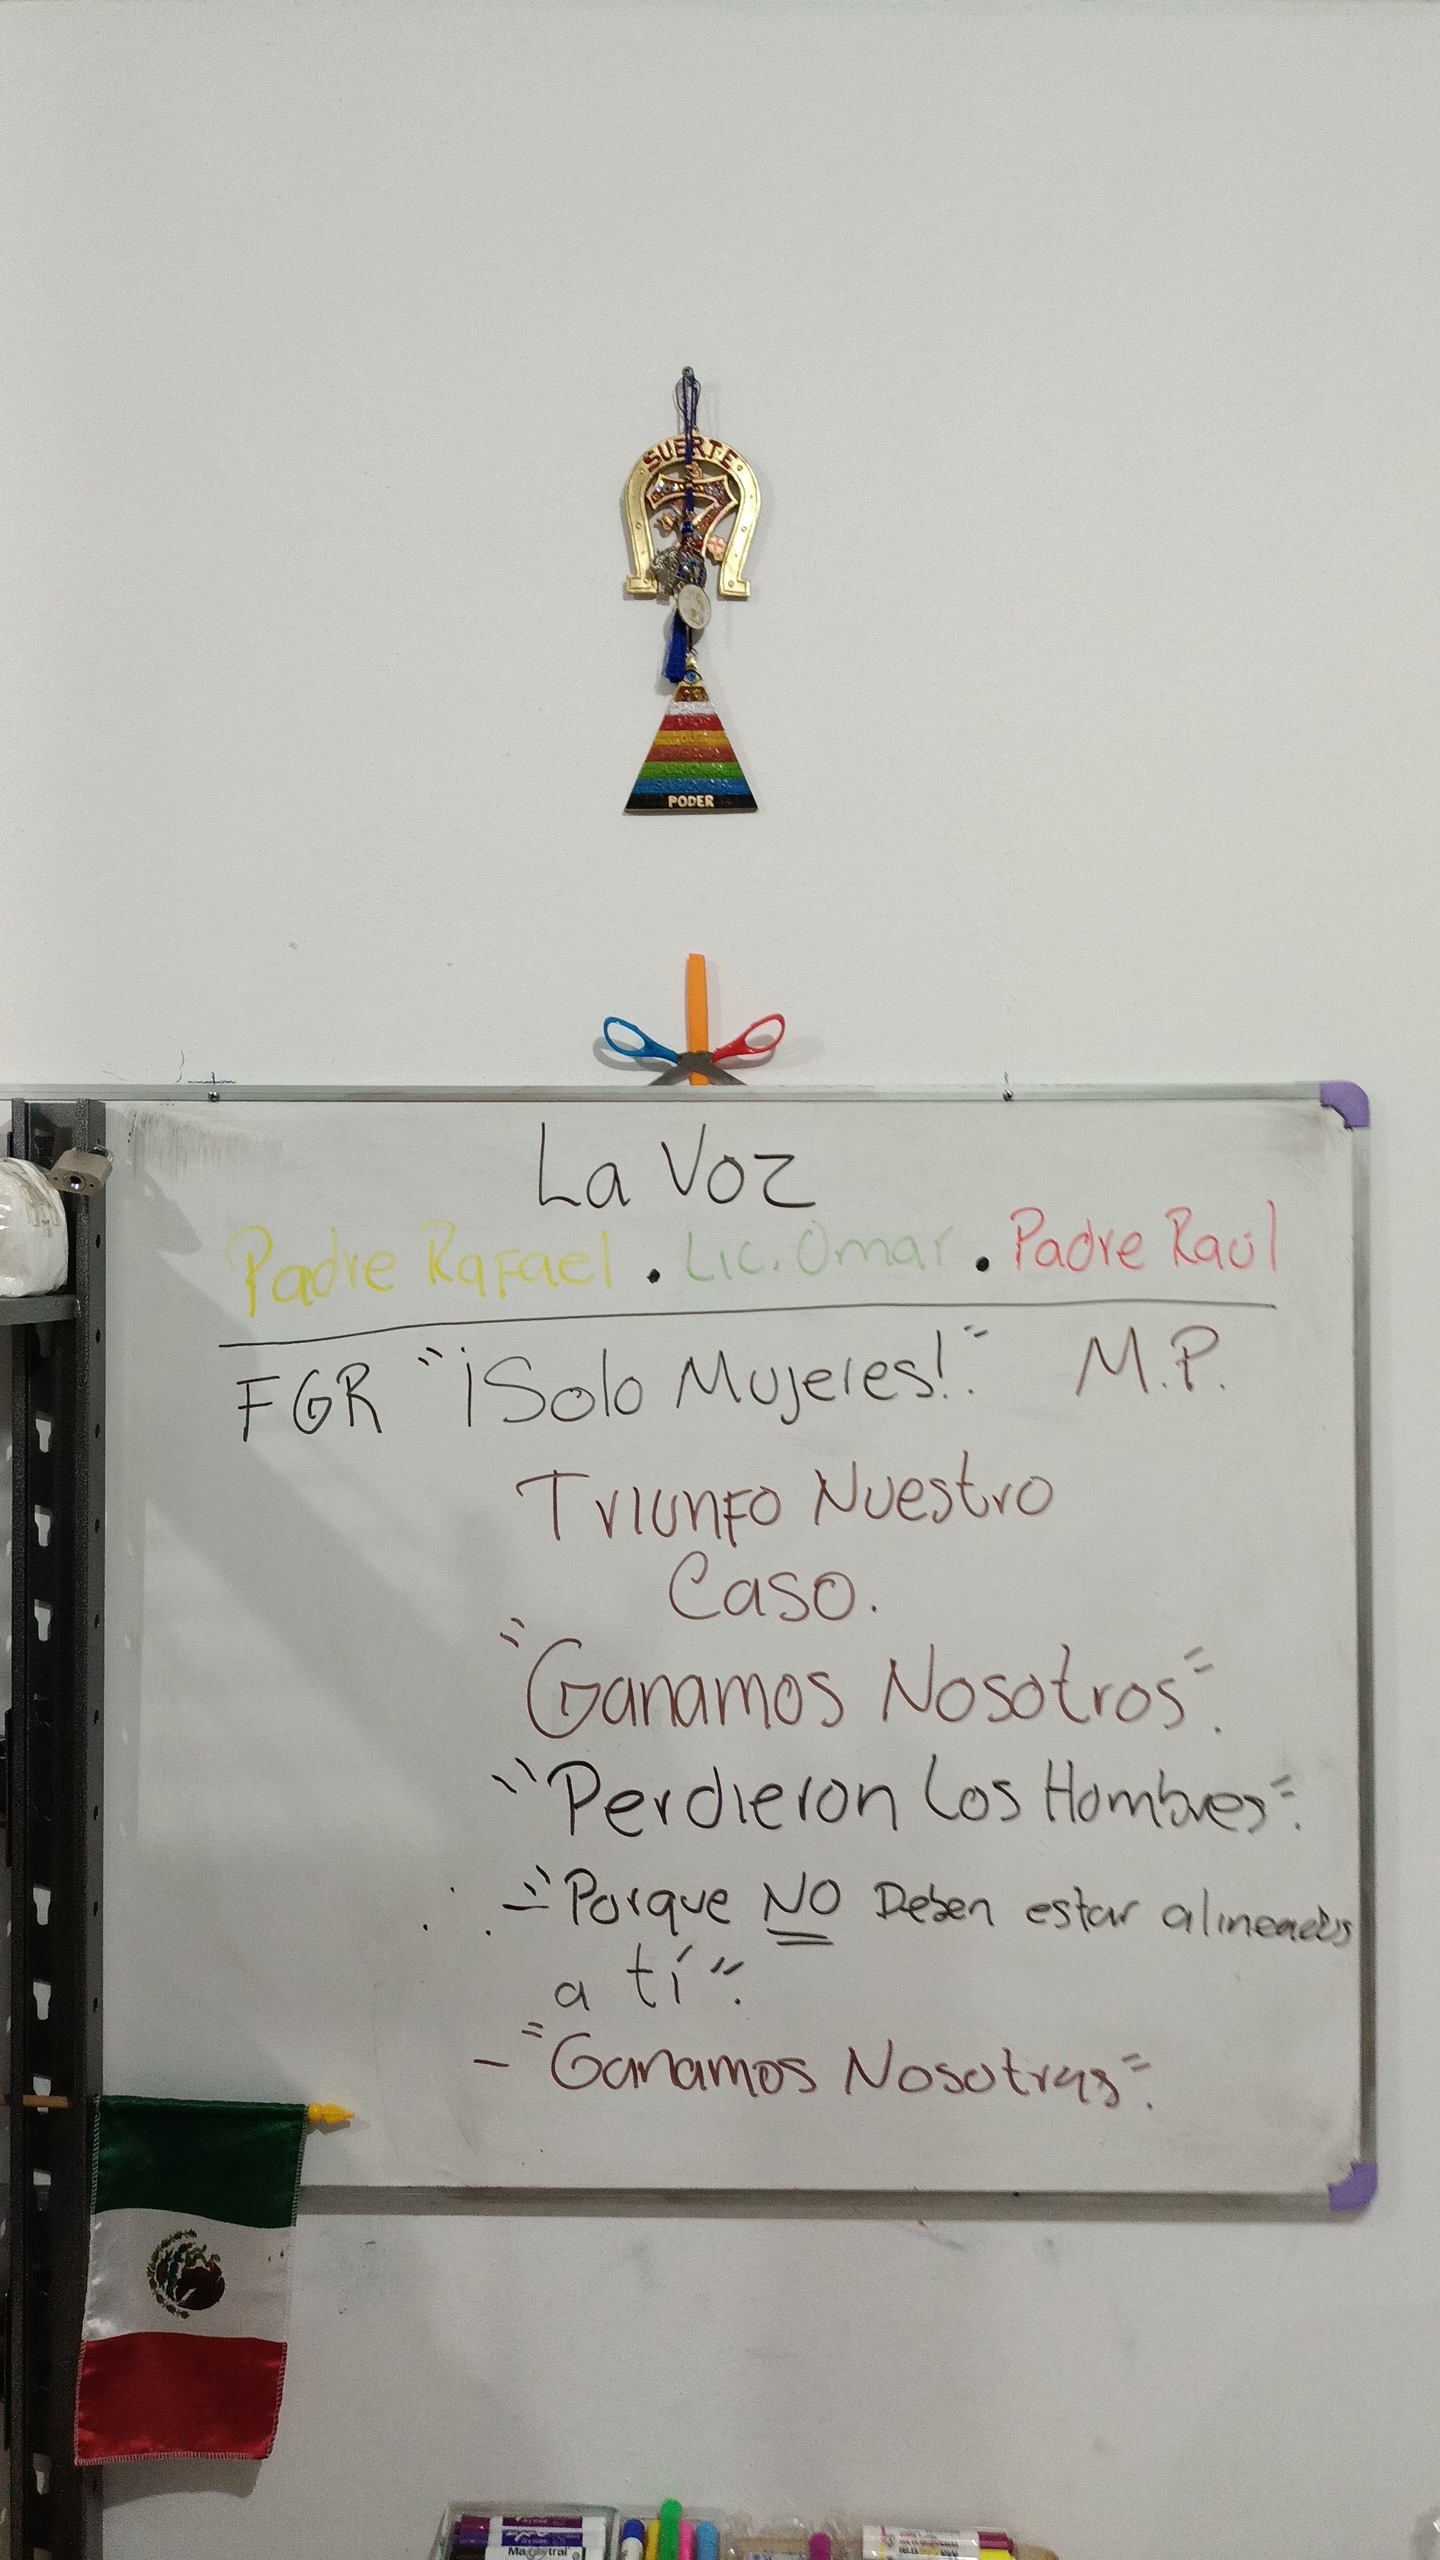 SUERTE
7
PODER
La Voz
Padre Rafael . Lic. Omar . Padre Raúl
FGR "¡Solo Mujeres!". M.P.
Triunfo Nuestro
Caso.
"Ganamos Nosotros".
"Perdieron Los Hombres".
∴ - "Porque NO Deben estar alineados
a tí".
- "Ganamos Nosotras".
Magistral